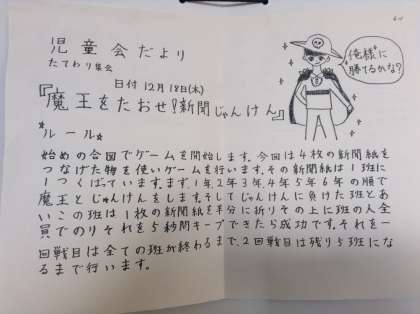 児童会だより
たてわり集会
日付12月18日(木)
『魔王をたおせ!新聞じゃんけん』
"俺様"に
勝てるかな?
☆ルール☆
始めの合図でゲームを開始します。今回は4枚の新聞紙を
つなげた物を使いゲームを行います。その新聞紙は1班に
1つくばっています。まず、1年、2年、3年、4年、5年、6年の順で
魔王とじゃんけんをします。そしてじゃんけんに負けた班とあ
いこの班は1枚の新聞紙を半分に折りその上に班の人全
員でのりそれを5秒間キープできたら成功です。それを一
回戦目は全ての班が終わるまで、2回戦目は残り5班にな
るまで行います。